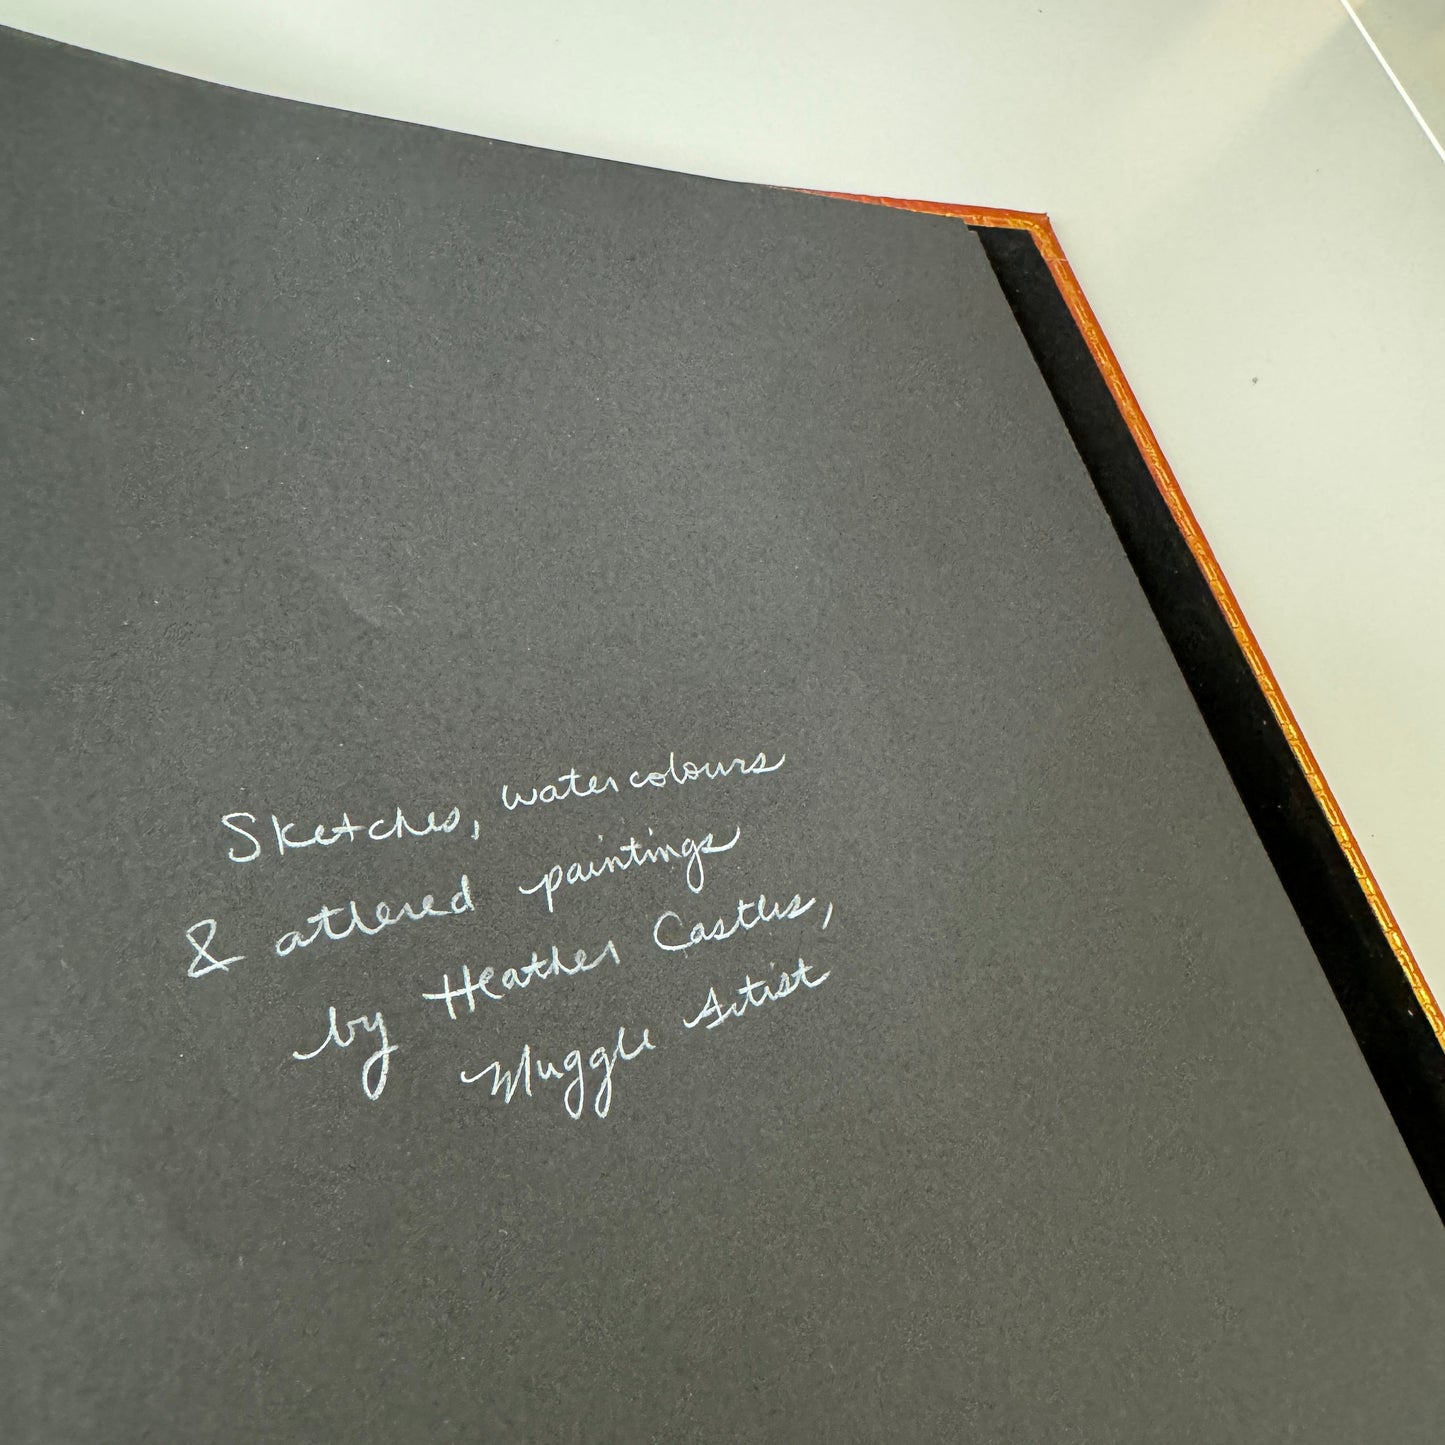 Sketches, watercolours
& atlered paintings
by Heather Castles,
Muggle Artist